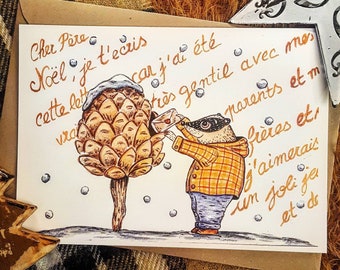 Cher Père
Noël, je t'écris
cette let car j'ai été
vrai très gentil avec mes
parents et m
frères et
j'aimerais
un joli je
et de